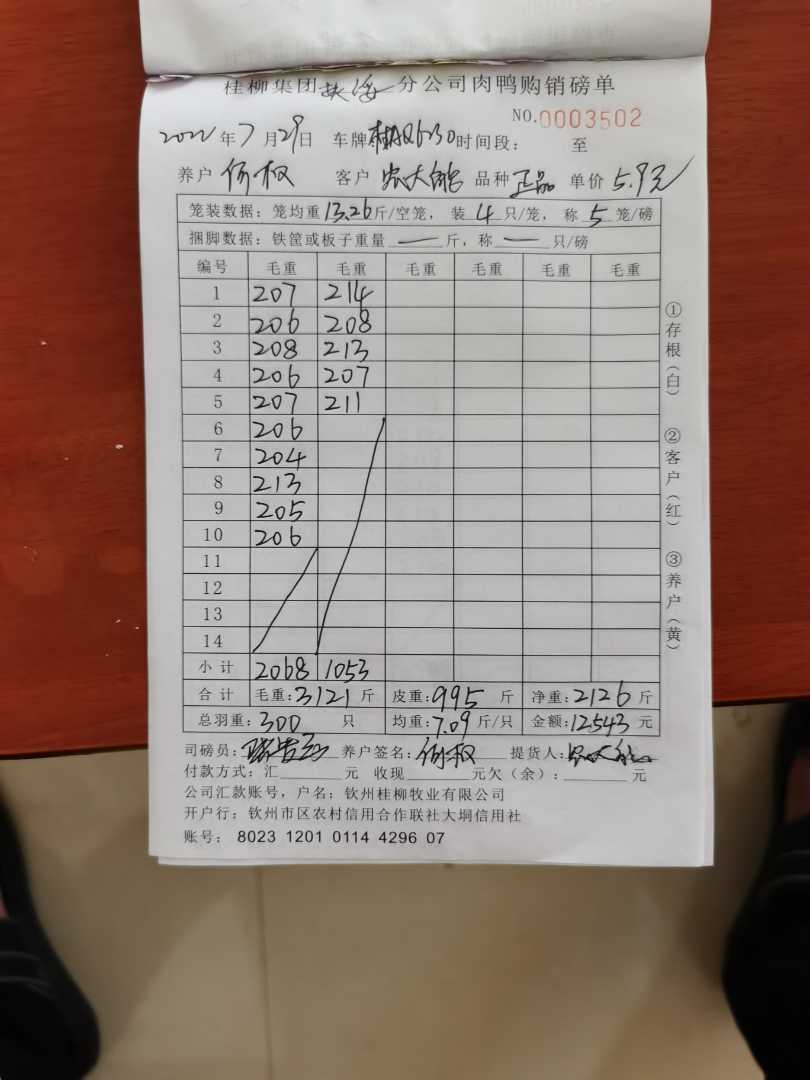 桂柳集团扶绥分公司肉鸭购销磅单
NO.0003502
2022年7月29日 车牌桂AQ6230时间段： 至
养户 何权 客户 农大能 品种 正品 单价 5.9元
笼装数据：笼均重13.26斤/空笼，装4只/笼，称5笼/磅
捆脚数据：铁筐或板子重量—斤，称—只/磅
编号 毛重 毛重 毛重 毛重 毛重 毛重
1 207 214
2 206 208
3 208 213
4 206 207
5 207 211
6 206
7 204
8 213
9 205
10 206
11
12
13
14
小计 2068 1053
合计 毛重：3121斤 皮重：995斤 净重：2126斤
总羽重：300只 均重：7.09斤/只 金额：12543元
司磅员： 养户签名：何权 提货人：农大能
付款方式：汇____元 收现____元欠（余）：____元
公司汇款账号，户名：钦州桂柳牧业有限公司
开户行：钦州市区农村信用合作联社大垌信用社
账号：8023 1201 0114 4296 07
①存根（白）
②客户（红）
③养户（黄）